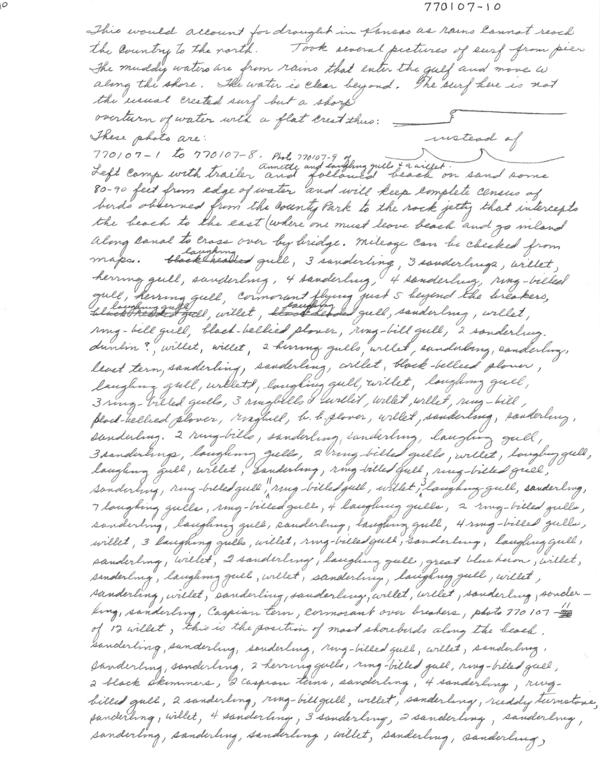 770107-10
This would account for drought in Kansas as rains cannot reach
the country to the north. Took several pictures of surf from pier
The muddy waters are from rains that enter the gulf and move w
along the shore. The water is clear beyond. The surf here is not
the usual crested surf but a sharp
overturn of water with a flat crest thus:
These photo are: instead of
770107-1 to 770107-8. Photo 770107-9 of
Annette and laughing gulls & a willet.
Left camp with trailer and followed beach on sand some
80-90 feet from edge of water and will keep complete census of
birds observed from the County Park to the rock jetty that intercepts
the beach to the east (where one must leave beach and go inland
along canal to cross over by bridge. Mileage can be checked from
laughing
maps. black headed gull, 3 sanderling, 3 sanderlings, willet,
herring gull, sanderling, 4 sanderling, 4 sanderling, ring-billed
gull, herring gull, cormorant flying just 5 beyond the breakers,
laughing gull laughing
black headed gull, willet, black headed gull, sanderling, willet,
ring-bill gull, black-bellied plover, ring-bill gull, 2 sanderling.
dunlin?, willet, willet, 2 herring gulls, willet, sanderling, sanderling,
least tern, sanderling, sanderling, willet, black-bellied plover,
laughing gull, willet, laughing gull, willet, laughing gull,
3 ring-billed gulls, 3 ringbills & willet, willet, willet, ring-bill,
black-bellied plover, ringbill, b. b. plover, willet, sanderling, sanderling,
sanderling. 2 ring-bills, sanderling, sanderling, laughing gull,
3 sanderlings, laughing gulls, 2 ring-billed gulls, willet, laughing gull,
laughing gull, willet, sanderling, ring-billed gull, ring-billed gull,
sanderling, ring-billed gull, 11 ring-billed gull, willet, 3 laughing gull, sanderling,
7 laughing gulls, ring-billed gulls, 4 laughing gulls, 2 ring-billed gulls,
sanderling, laughing gull, sanderling, laughing gull, 4 ring-billed gulls,
willet, 3 laughing gulls, willet, ring-billed gull, sanderling, laughing gull,
sanderling, willet, 2 sanderling, laughing gull, great blue heron, willet,
sanderling, laughing gull, willet, sanderling, laughing gull, willet,
sanderling, willet, sanderling, sanderling, willet, willet, sanderling, sander-
ling, sanderling, Caspian tern, cormorant over breakers, photo 770107-11
of 12 willet, this is the position of most shorebirds along the beach.
sanderling, sanderling, sanderling, ring-billed gull, willet, sanderling.
sanderling, sanderling, 2 herring gulls, ring-billed gull, ring-billed gull,
2 black skimmers, 2 caspian terns, sanderling, 4 sanderling, ring-
billed gull, 2 sanderling, ring-bill gull, willet, sanderling, ruddy turnstone,
sanderling, willet, 4 sanderling, 3 sanderling, 2 sanderling, sanderling,
sanderling, sanderling, sanderling, willet, sanderling, sanderling,